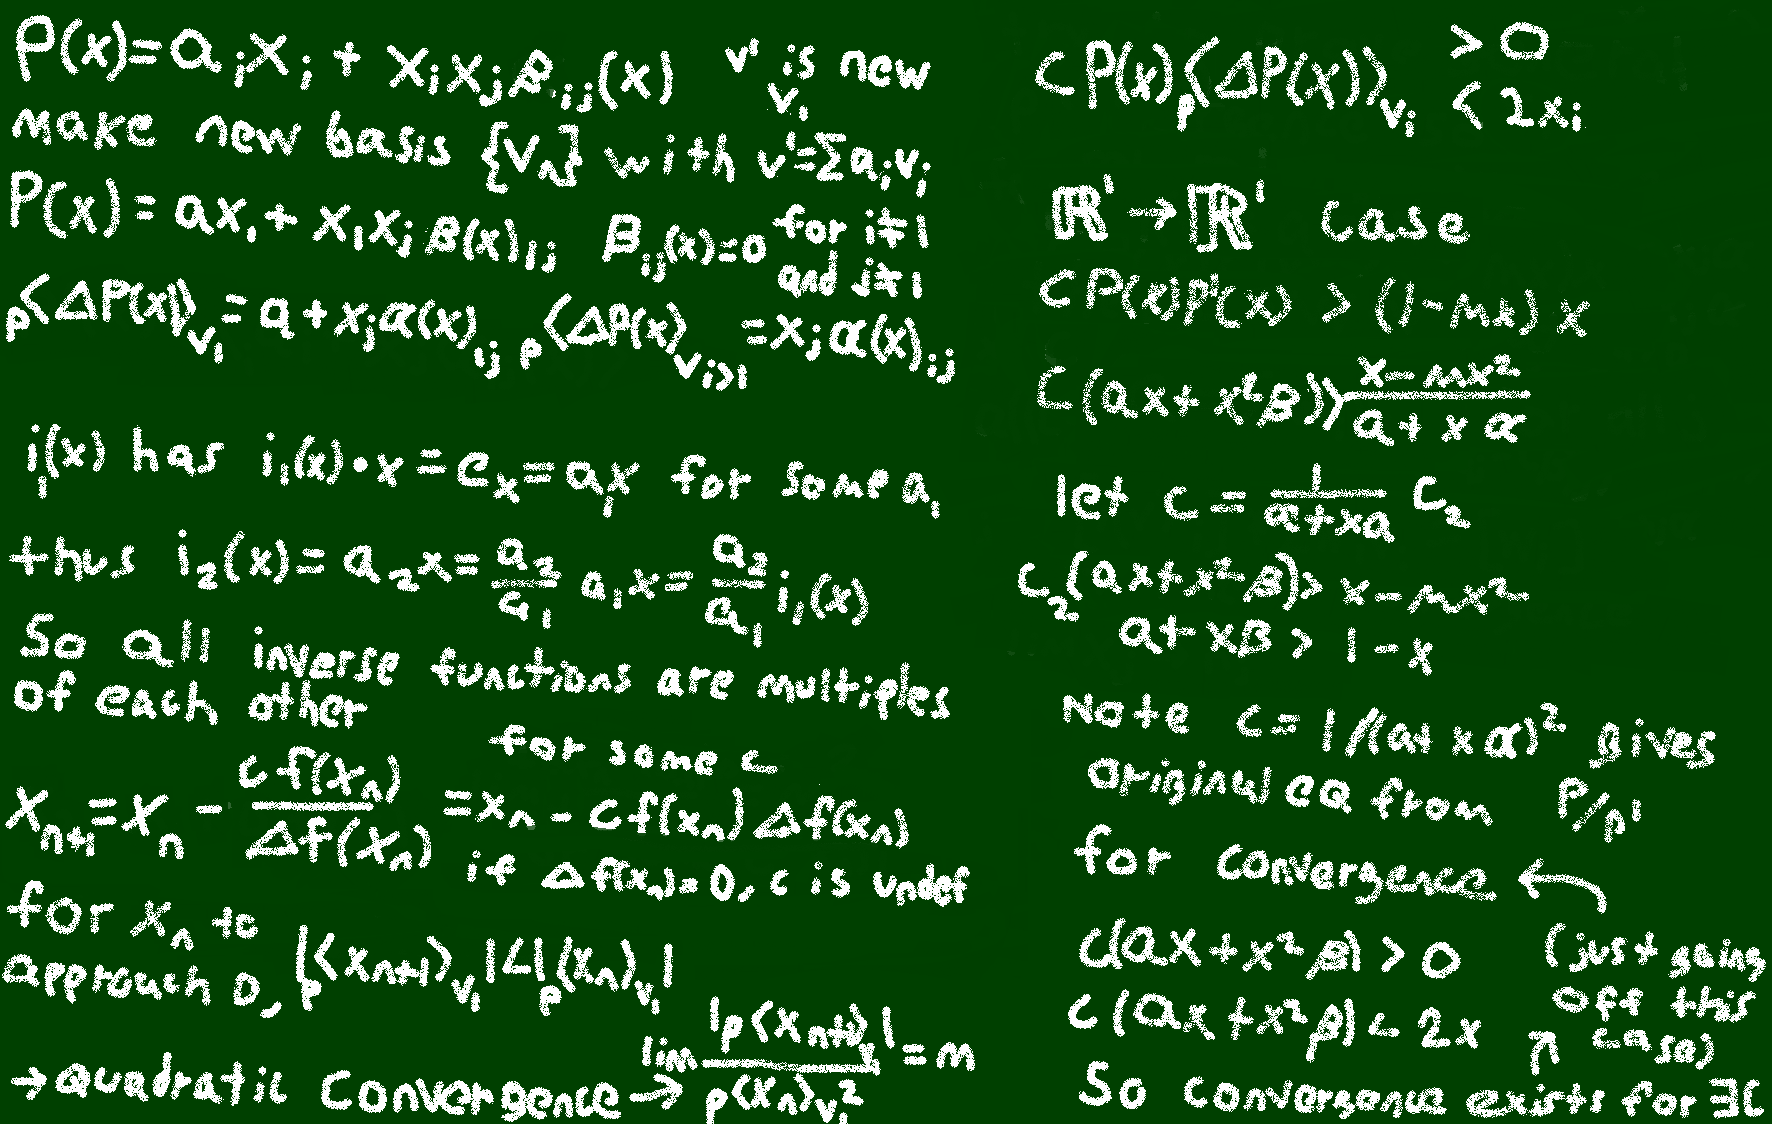 P(x)=a_i x_i + x_i x_j β_ij(x) v' is new v_1
make new basis {v_n} with v'=Σa_i v_i
P(x)=ax_1+ x_1 x_j β(x)_1j β_ij(x)=0 for i≠1 and j≠1
p⟨ΔP(x)⟩_v_1 = a+x_j α(x)_ij p⟨ΔP(x)⟩_v_i>1 =x_j α(x)_ij
i_1(x) has i_1(x)•x=e_x=a_1 x for some a_1
thus i_2(x)=a_2 x=a_2/a_1 a_1 x=a_2/a_1 i_1(x)
So all inverse functions are multiples
of each other
for some c
x_n+1=x_n - c f(x_n)/Δf(x_n) =x_n - c f(x_n) Δf(x_n)
if Δf(x_n)=0, c is undef
for x_n to
approach 0, |p⟨x_n+1⟩_v_1|<|p⟨x_n⟩_v_1|
→quadratic convergence→ lim |p⟨x_n+1⟩_v_1|/p⟨x_n⟩_v_1^2 =m
c P(x) p⟨ΔP(x)⟩_v_i >0
<2x_i
ℝ^1→ℝ^1 case
c P(x)P'(x) > (1-mx) x
c(ax+x^2β)>x-mx^2/a+xα
let c=1/a+xα c_2
c_2(ax+x^2β)> x-mx^2
a+xβ> 1-x
Note c=1/(a+xα)^2 gives
original eq from P/P'
for convergence ←
c(ax+x^2β)>0 (just going
c(ax+x^2β)<2x off this
case)
So convergence exists for ∃c